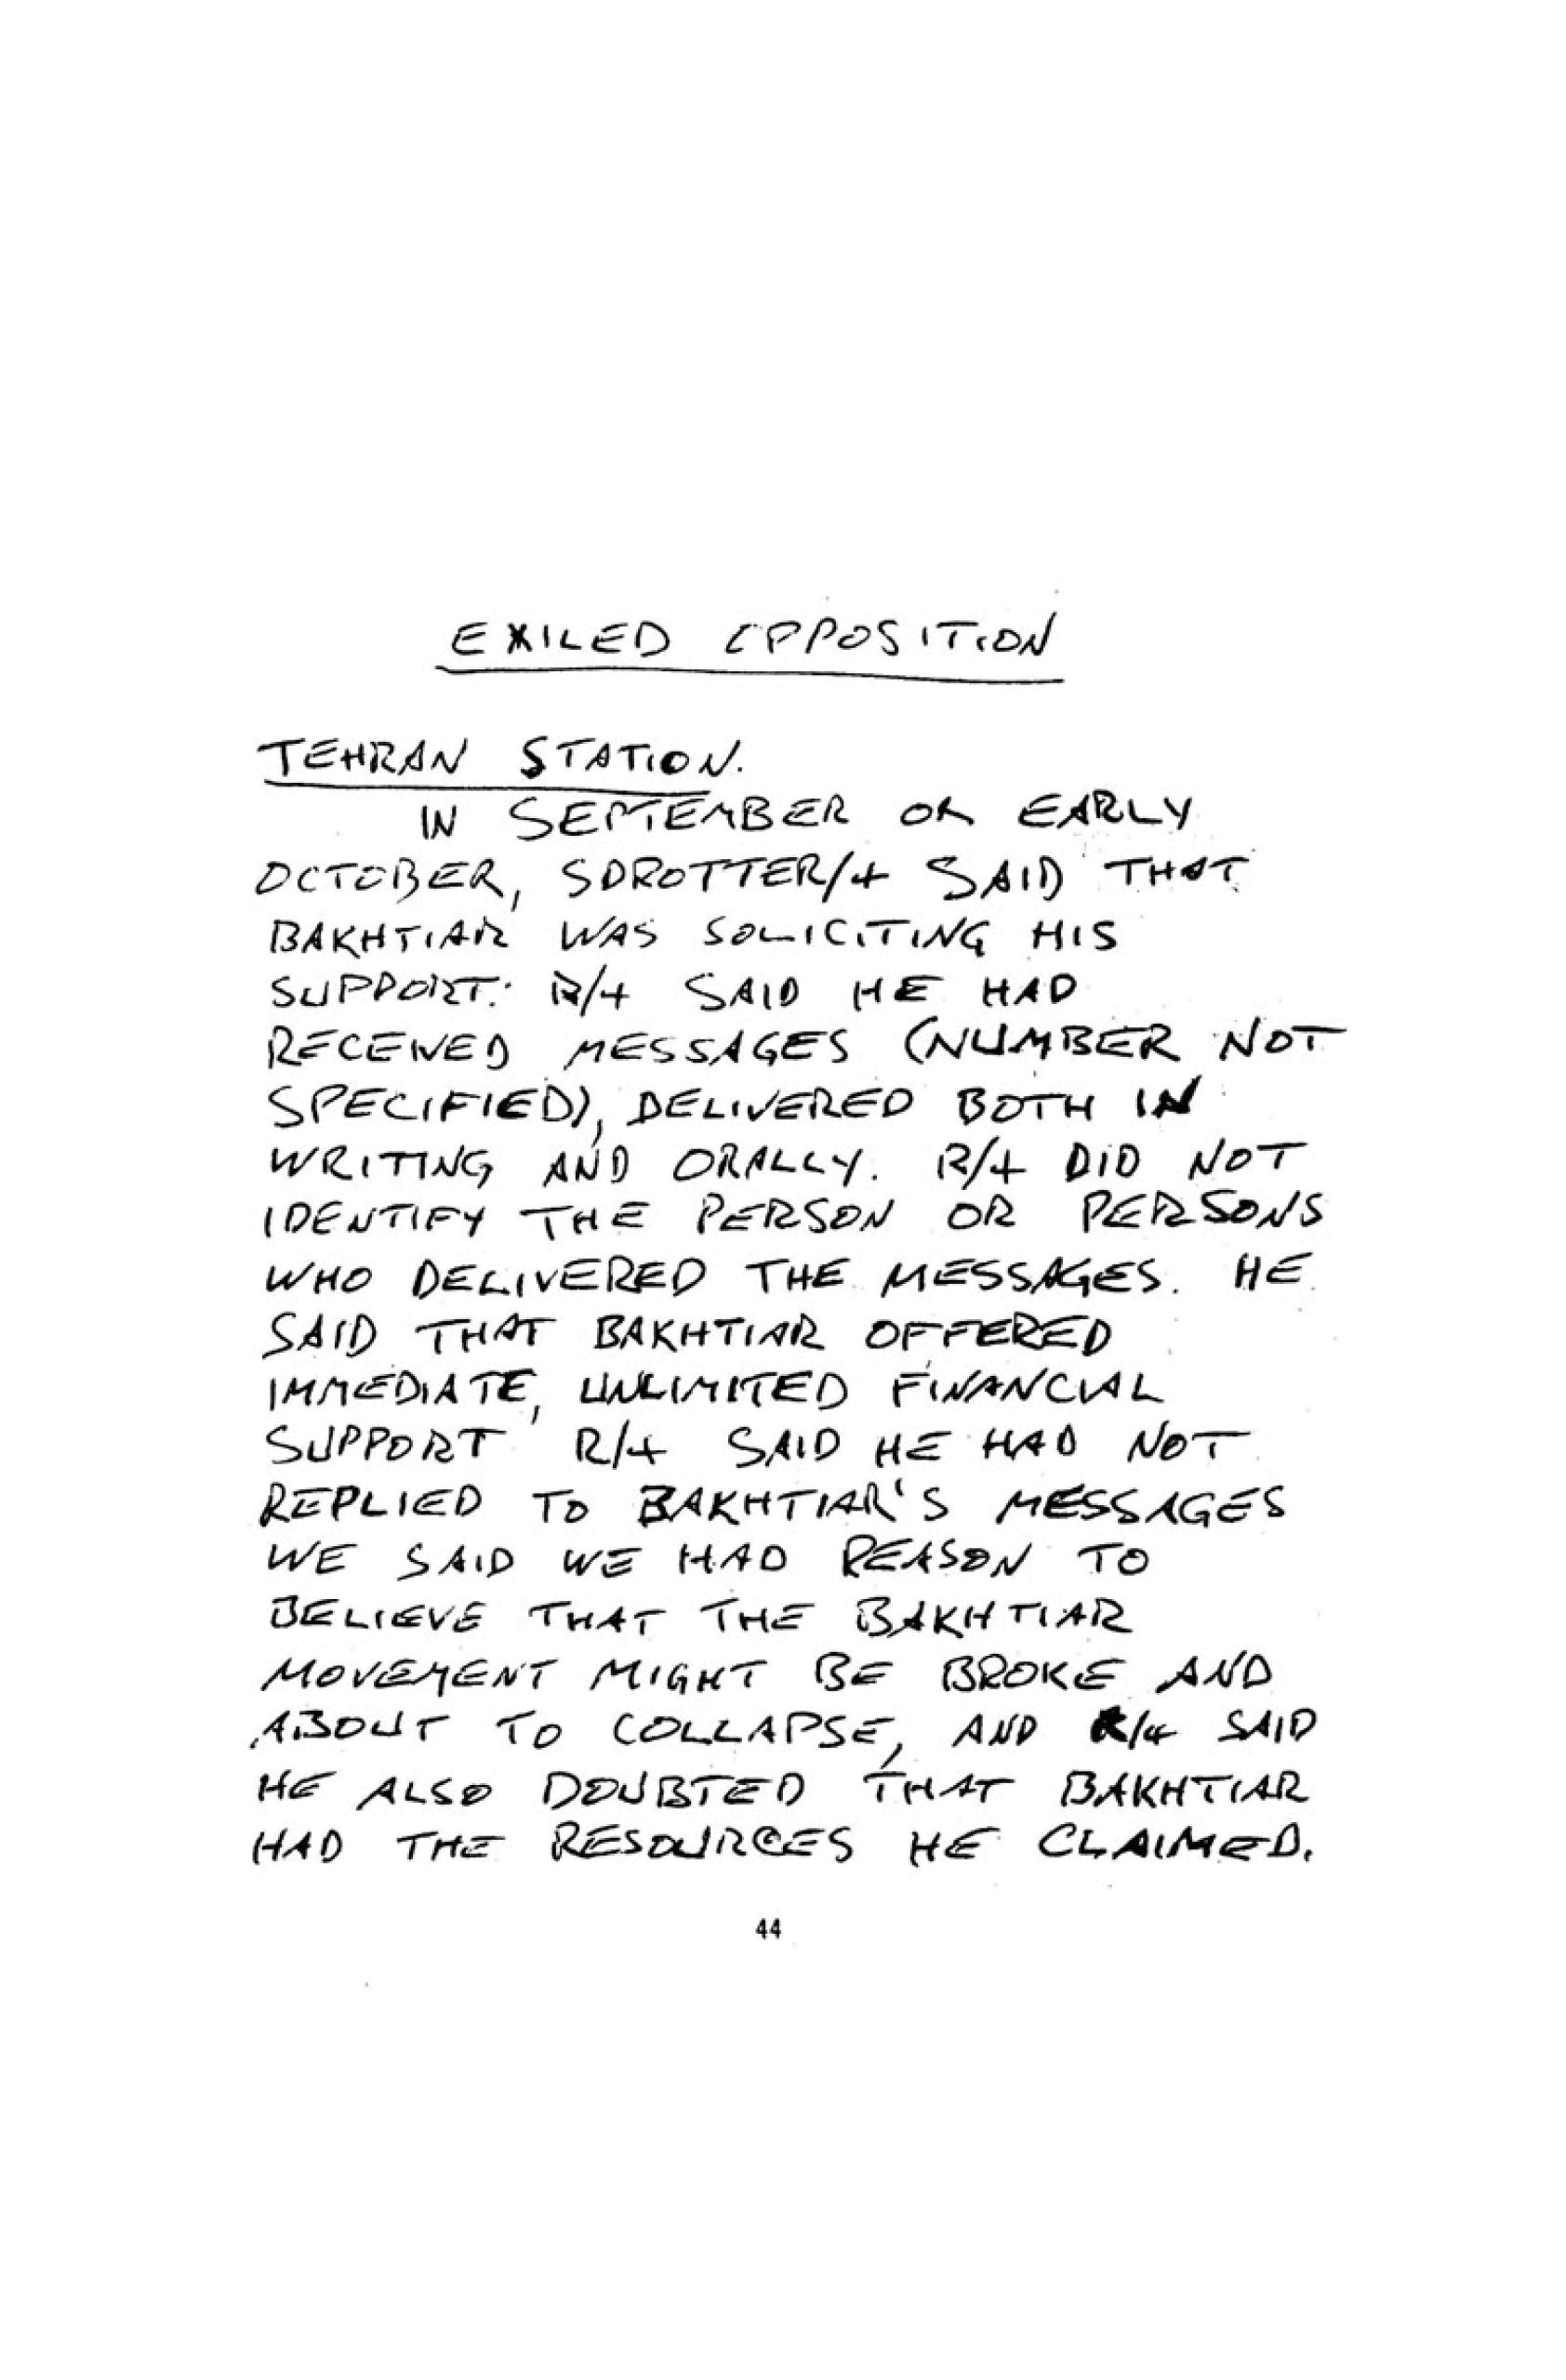 EXILED OPPOSITION
TEHRAN STATION.
IN SEPTEMBER OR EARLY
OCTOBER, SDROTTER/4 SAID THAT
BAKHTIAR WAS SOLICITING HIS
SUPPORT. R/4 SAID HE HAD
RECEIVED MESSAGES (NUMBER NOT
SPECIFIED), DELIVERED BOTH IN
WRITING AND ORALLY. R/4 DID NOT
IDENTIFY THE PERSON OR PERSONS
WHO DELIVERED THE MESSAGES. HE
SAID THAT BAKHTIAR OFFERED
IMMEDIATE, UNLIMITED FINANCIAL
SUPPORT R/4 SAID HE HAD NOT
REPLIED TO BAKHTIAR'S MESSAGES
WE SAID WE HAD REASON TO
BELIEVE THAT THE BAKHTIAR
MOVEMENT MIGHT BE BROKE AND
ABOUT TO COLLAPSE, AND R/4 SAID
HE ALSO DOUBTED THAT BAKHTIAR
HAD THE RESOURCES HE CLAIMED.
44